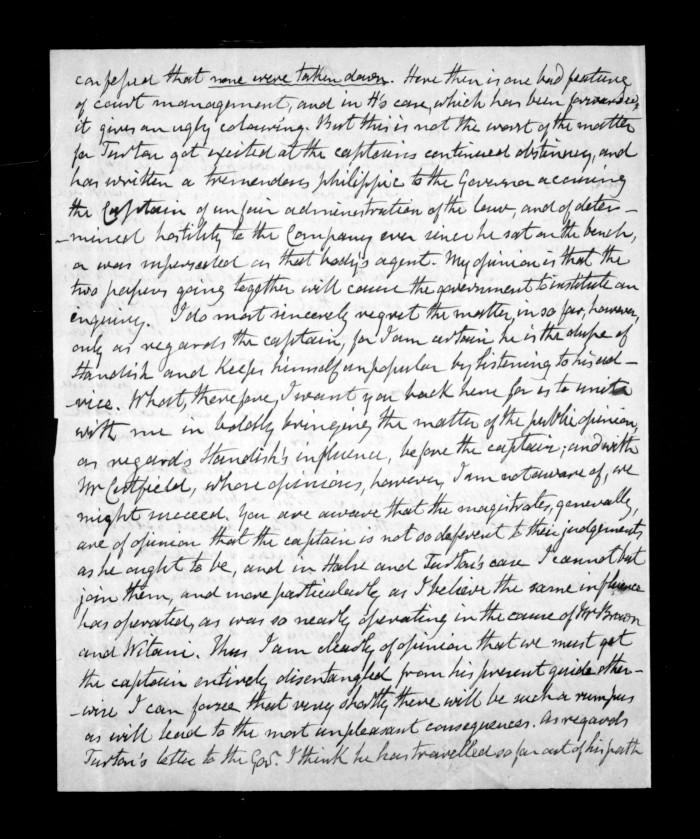 confessed that none were taken down. Here then is one bad feature
of court management, and in H's case, which has been forwarded,
it gives an ugly colouring. But this is not the worst of the matter
for Turton got excited at the captain's continued obstinacy, and
has written a tremendous philippic to the Governor accusing
the Captain of unfair administration of the law, and of deter-
-mined hostility to the Company ever since he sat on the bench,
or was suspected as that body's agent. My opinion is that the
two papers going together will cause the government to institute an
enquiry. I do most sincerely regret the matter, in so far, however,
only as regards the captain, for I am certain he is the dupe of
Standish and keeps himself unpopular by listening to his ad-
-vice. What, therefore, I want you back here for is to unite
with me in boldly bringing the matter of the public opinion,
as regards Standish's influence, before the captain; and with
Mr Cutfield, whose opinions, however, I am not aware of, we
might succeed. You are aware that the magistrates, generally,
are of opinion that the captain is not so deferent to their judgements
as he ought to be, and in Halse and Turton's case I cannot but
join them, and more particularly as I believe the same influence
has operated, as was so nearly operating in the cause of Mr Brown
and Witani. Thus I am clearly of opinion that we must get
the captain entirely disentangled from his present guide other-
-wise I can foresee that very shortly there will be such a rumpus
as will lead to the most unpleasant consequences. As regards
Turton's letter to the Gov. I think he has travelled so far out of his path